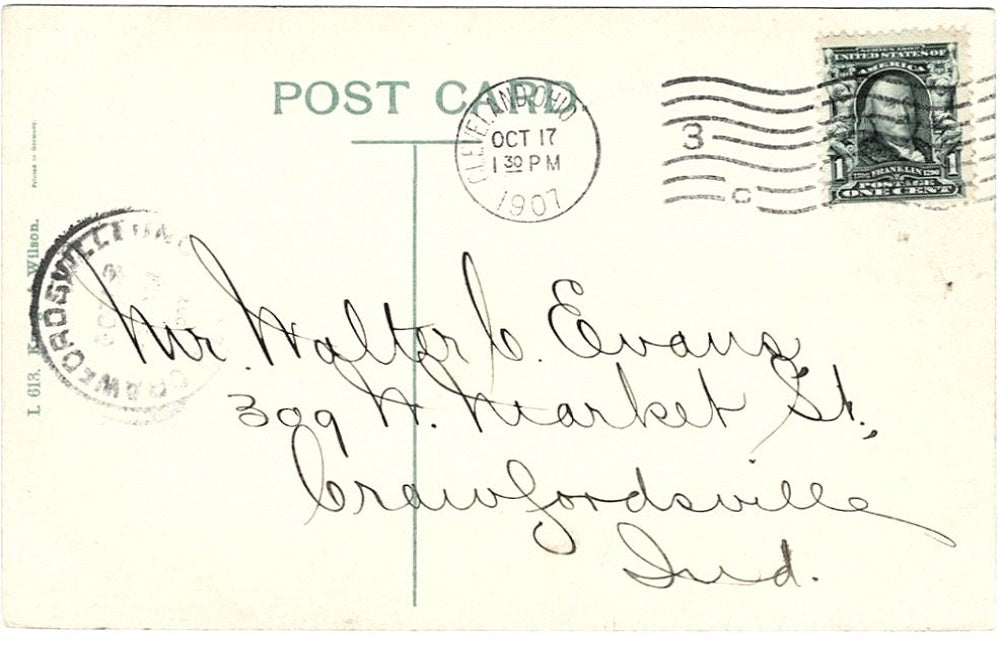 POST CARD
CLEVELAND, OHIO
OCT 17
1 30 PM
1907
3
C
SERIES 1902
UNITED STATES OF
AMERICA
1 1
FRANKLIN
POSTAGE
ONE CENT
CRAWFORDSVILLE IND
Mr. Walter C. Evans,
309 W. Market St.,
Crawfordsville
Ind.
I. 613. Wilson.
Printed in Germany.